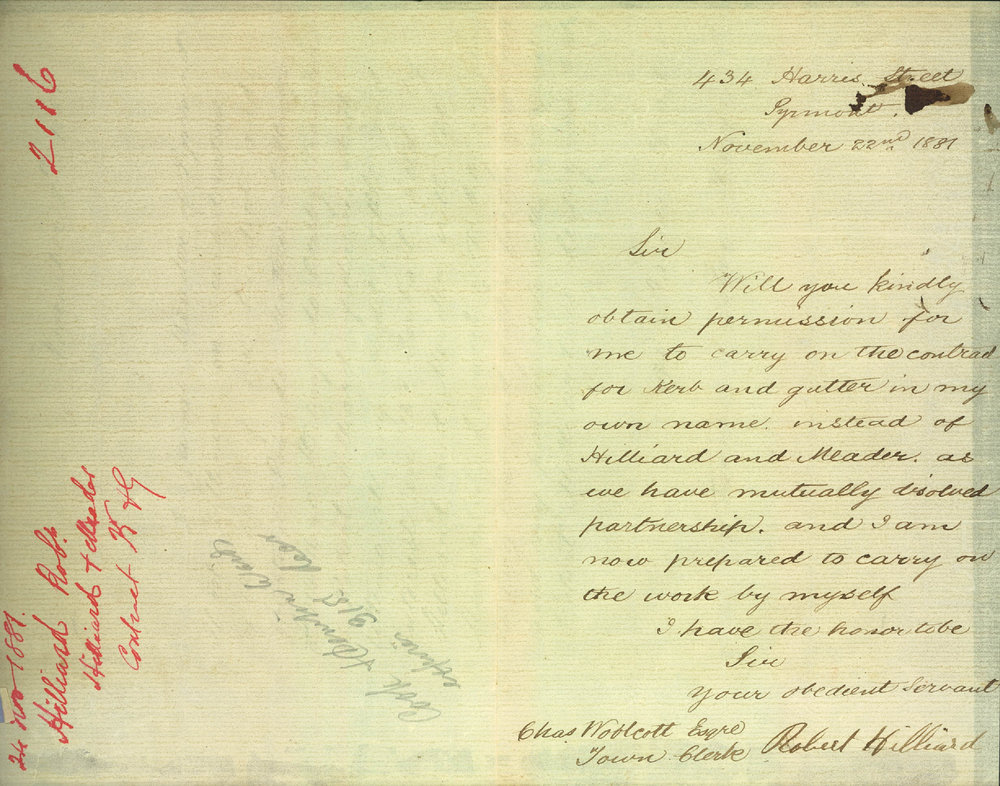 434 Harris Street
Pyrmont.
November 22nd 1881
Sir
Will you kindly
obtain permission for
me to carry on the contract
for Kerb and gutter in my
own name. instead of
Hilliard and Meader. as
we have mutually disolved
partnership. and I am
now prepared to carry on
the work by myself
I have the honor to be
Sir
Your obedient Servant
Robert Hilliard
Chas. Woolcott Esqre
Town Clerk
2116
24 Nov 1881.
Hilliard Robt
Hilliard & Meader
Contract K & G